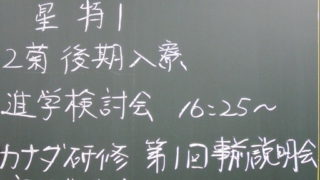 星特1
2菊 後期入寮
進学検討会 16:25~
カナダ研修 第1回事前説明会